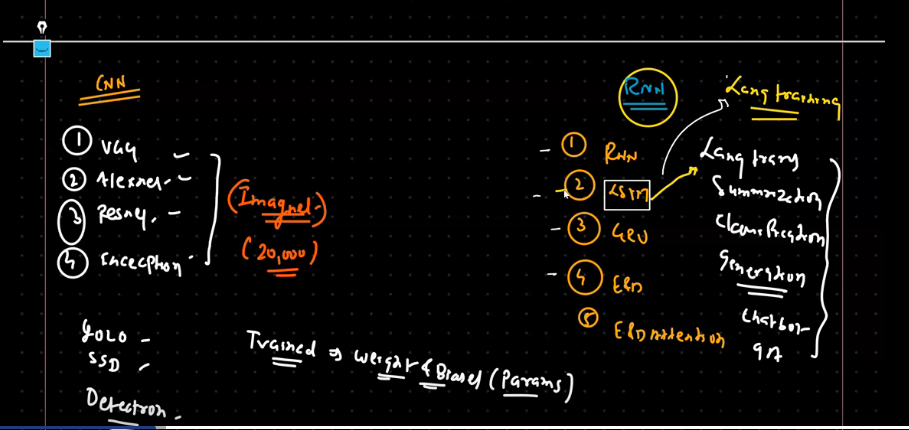 CNN
① VGG
② Alexnet
③ Resnet
④ Inception
(Imagnet)
(20,000)
YOLO
SSD
Detectron
Trained => weight & Biases (Params)
RNN
① RNN
② LSTM
③ GRU
④ E&D
⑤ E&D Attention
Lang training
Lang trans
Summrization
Classification
Generation
Chatbot
QA